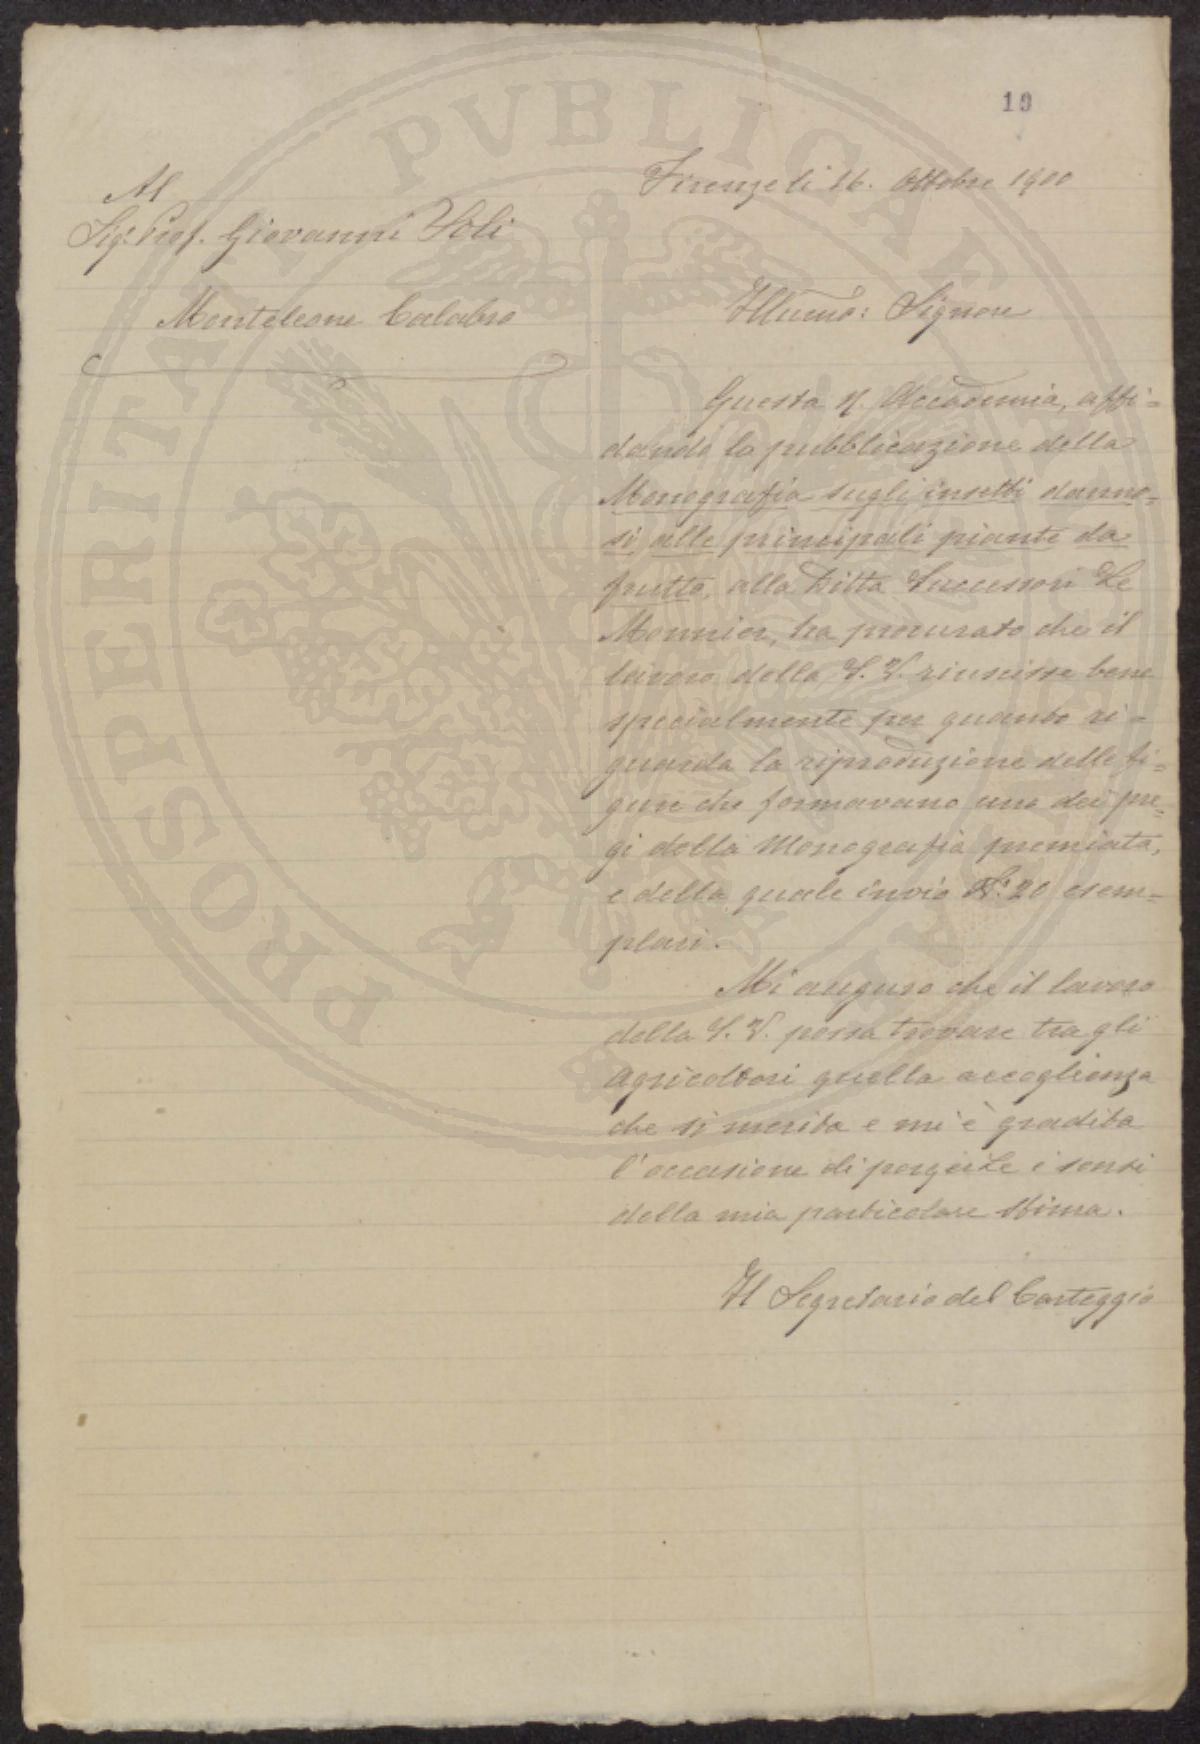 19
Firenze li 16. Ottobre 1900
Al
Sigr. Prof. Giovanni Soli
Monteleone Calabro
Illumo: Signore
Questa R. Accademia, affi=
dando la pubblicazione della
Monografia sugli insetti danno-
si alle principali piante da
frutto, alla Ditta Successori Le
Monnier, ha procurato che il
lavoro della S. V. riuscisse bene
specialmente per quanto ri=
guarda la riproduzione delle fi=
gure che formavano uno dei pre=
gi della Monografia premiata,
e della quale invio N: 20 esem=
plari.
Mi auguro che il lavoro
della S. V. possa trovare tra gli
agricoltori quella accoglienza
che si merita e mi è gradita
l'occasione di porgerLe i sensi
della mia particolare stima.
Il Segretario del Carteggio
PROSPERITATI PVBLICAE